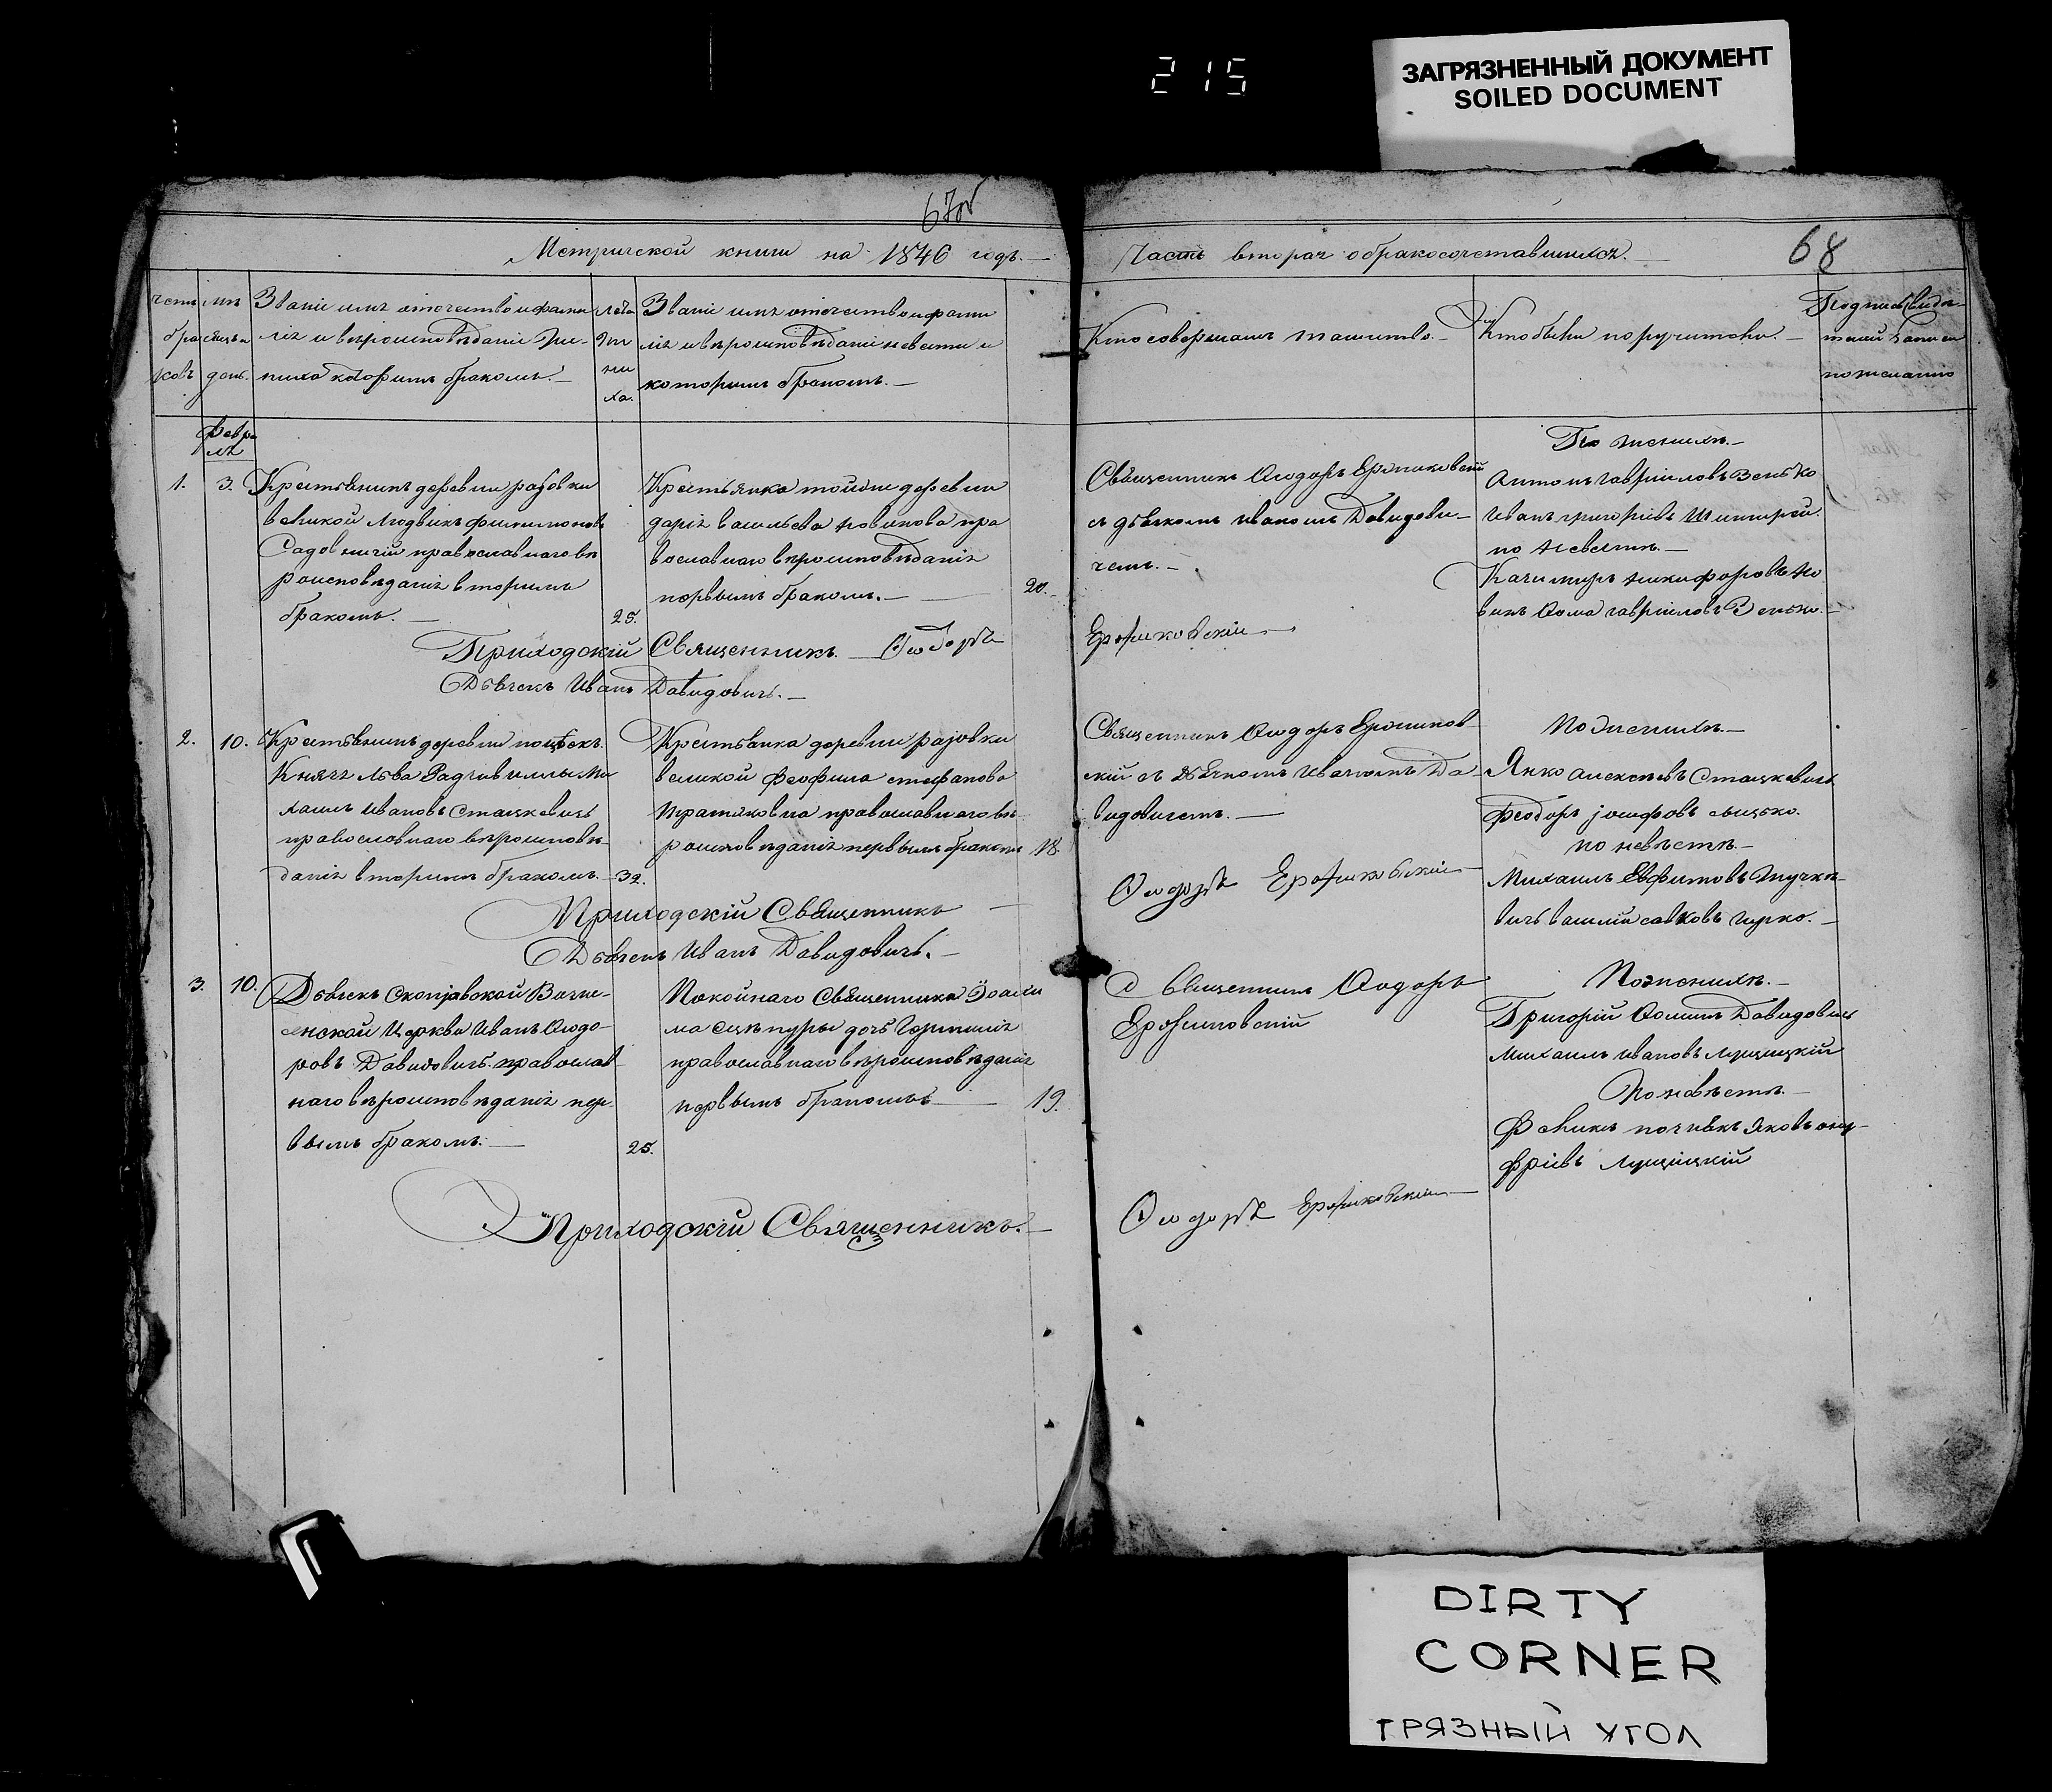 215
ЗАГРЯЗНЕННЫЙ ДОКУМЕНТ
SOILED DOCUMENT
67об
Метрической книги на 1846 годъ.
Часть вторая о бракосочетавшихся.
68
Званіе имя отечество и фами
лія и вѣроисповѣданіе Же-
ниха которымъ бракомъ.
Лѣта
Же
ни
ха.
Званіе имя отечество и фами
лія и вѣроисповѣданіе невѣсты и
которымъ бракомъ.
Кто совершалъ таинство.
Кто были поручители.
Февра
ля
1.
3.
Крестьянинъ деревни
великой Людвикъ Филимоновъ
православнаго вѣ
роисповѣданія вторымъ
бракомъ.
25.
Крестьянка той же деревни
Дарія Васильева Новикова пра
вославнаго вѣроисповѣданія
первымъ бракомъ.
20.
Священникъ Ѳеодоръ
съ дьячкомъ Иваномъ Давидови-
чемъ.
По женихѣ.
Антонъ Гавріиловъ Зенько
Иванъ Григоріевъ
по невѣстѣ.
Казимиръ Никифоровъ Но
викъ Ѳома Гавріиловъ Зенько.
Приходскій Священникъ. Ѳеодоръ
Дьячекъ Иванъ Давидовичъ.
2.
10.
Крестьянинъ деревни
Князя Льва Радзивиллы Ми
хаилъ Ивановъ Сташкевичъ
православнаго вѣроисповѣ-
данія вторымъ бракомъ.
32.
Крестьянка деревни
великой Феофила Стефанова
православнаго вѣ
роисповѣданія первымъ бракомъ
18.
Священникъ Ѳеодоръ
скій съ дьячкомъ Иваномъ Да-
видовичемъ.
По женихѣ.
Янко Алексѣевъ Сташкевичъ
Феодоръ Іосифовъ
по невѣстѣ.
Михаилъ Евфимовъ
вичъ Василій Савковъ
Ѳеодоръ
Приходскій Священникъ
Дьячекъ Иванъ Давидовичъ.
3.
10.
Дьячекъ Возне-
сенской Церкви Иванъ Ѳеодо-
ровъ Давидовичъ православ
наго вѣроисповѣданія пер-
вымъ бракомъ.
25.
Покойнаго Священника Іоаки
ма дочь
православнаго вѣроисповѣданія
первымъ бракомъ
19.
Священникъ Ѳеодоръ
По женихѣ.
Григорій Ѳоминъ Давидовичъ
Михаилъ Ивановъ Лущицкій
По невѣстѣ.
Феликъ Яковъ Ону-
фріевъ Лущицкій
Приходскій Священникъ.
Ѳеодоръ
DIRTY
CORNER
ГРЯЗНЫЙ УГОЛ